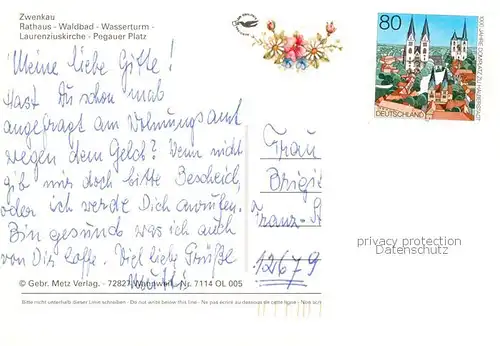 Zwenkau
Rathaus - Waldbad - Wasserturm -
Laurenziuskirche - Pegauer Platz
Meine liebe Gitte!
Hast Du schon mal
angefragt am Wohnungsamt
wegen dem Geld? Wenn nicht
gib mir doch bitte Bescheid,
oder ich werde Dich anrufen.
Bin gesund was ich auch
von Dir hoffe. Viel liebe Grüße
Mutti
80
DEUTSCHLAND
1000 JAHRE DOMPLATZ ZU HALBERSTADT
Frau
Brigi
Franz-S
12679
privacy protection
Datenschutz
© Gebr. Metz Verlag. - 72827 Wannweil - Nr. 7114 OL 005
Bitte nicht unterhalb dieser Linie schreiben - Do not write below this line - Ne pas écrire au-dessous de cette ligne - Non scriv